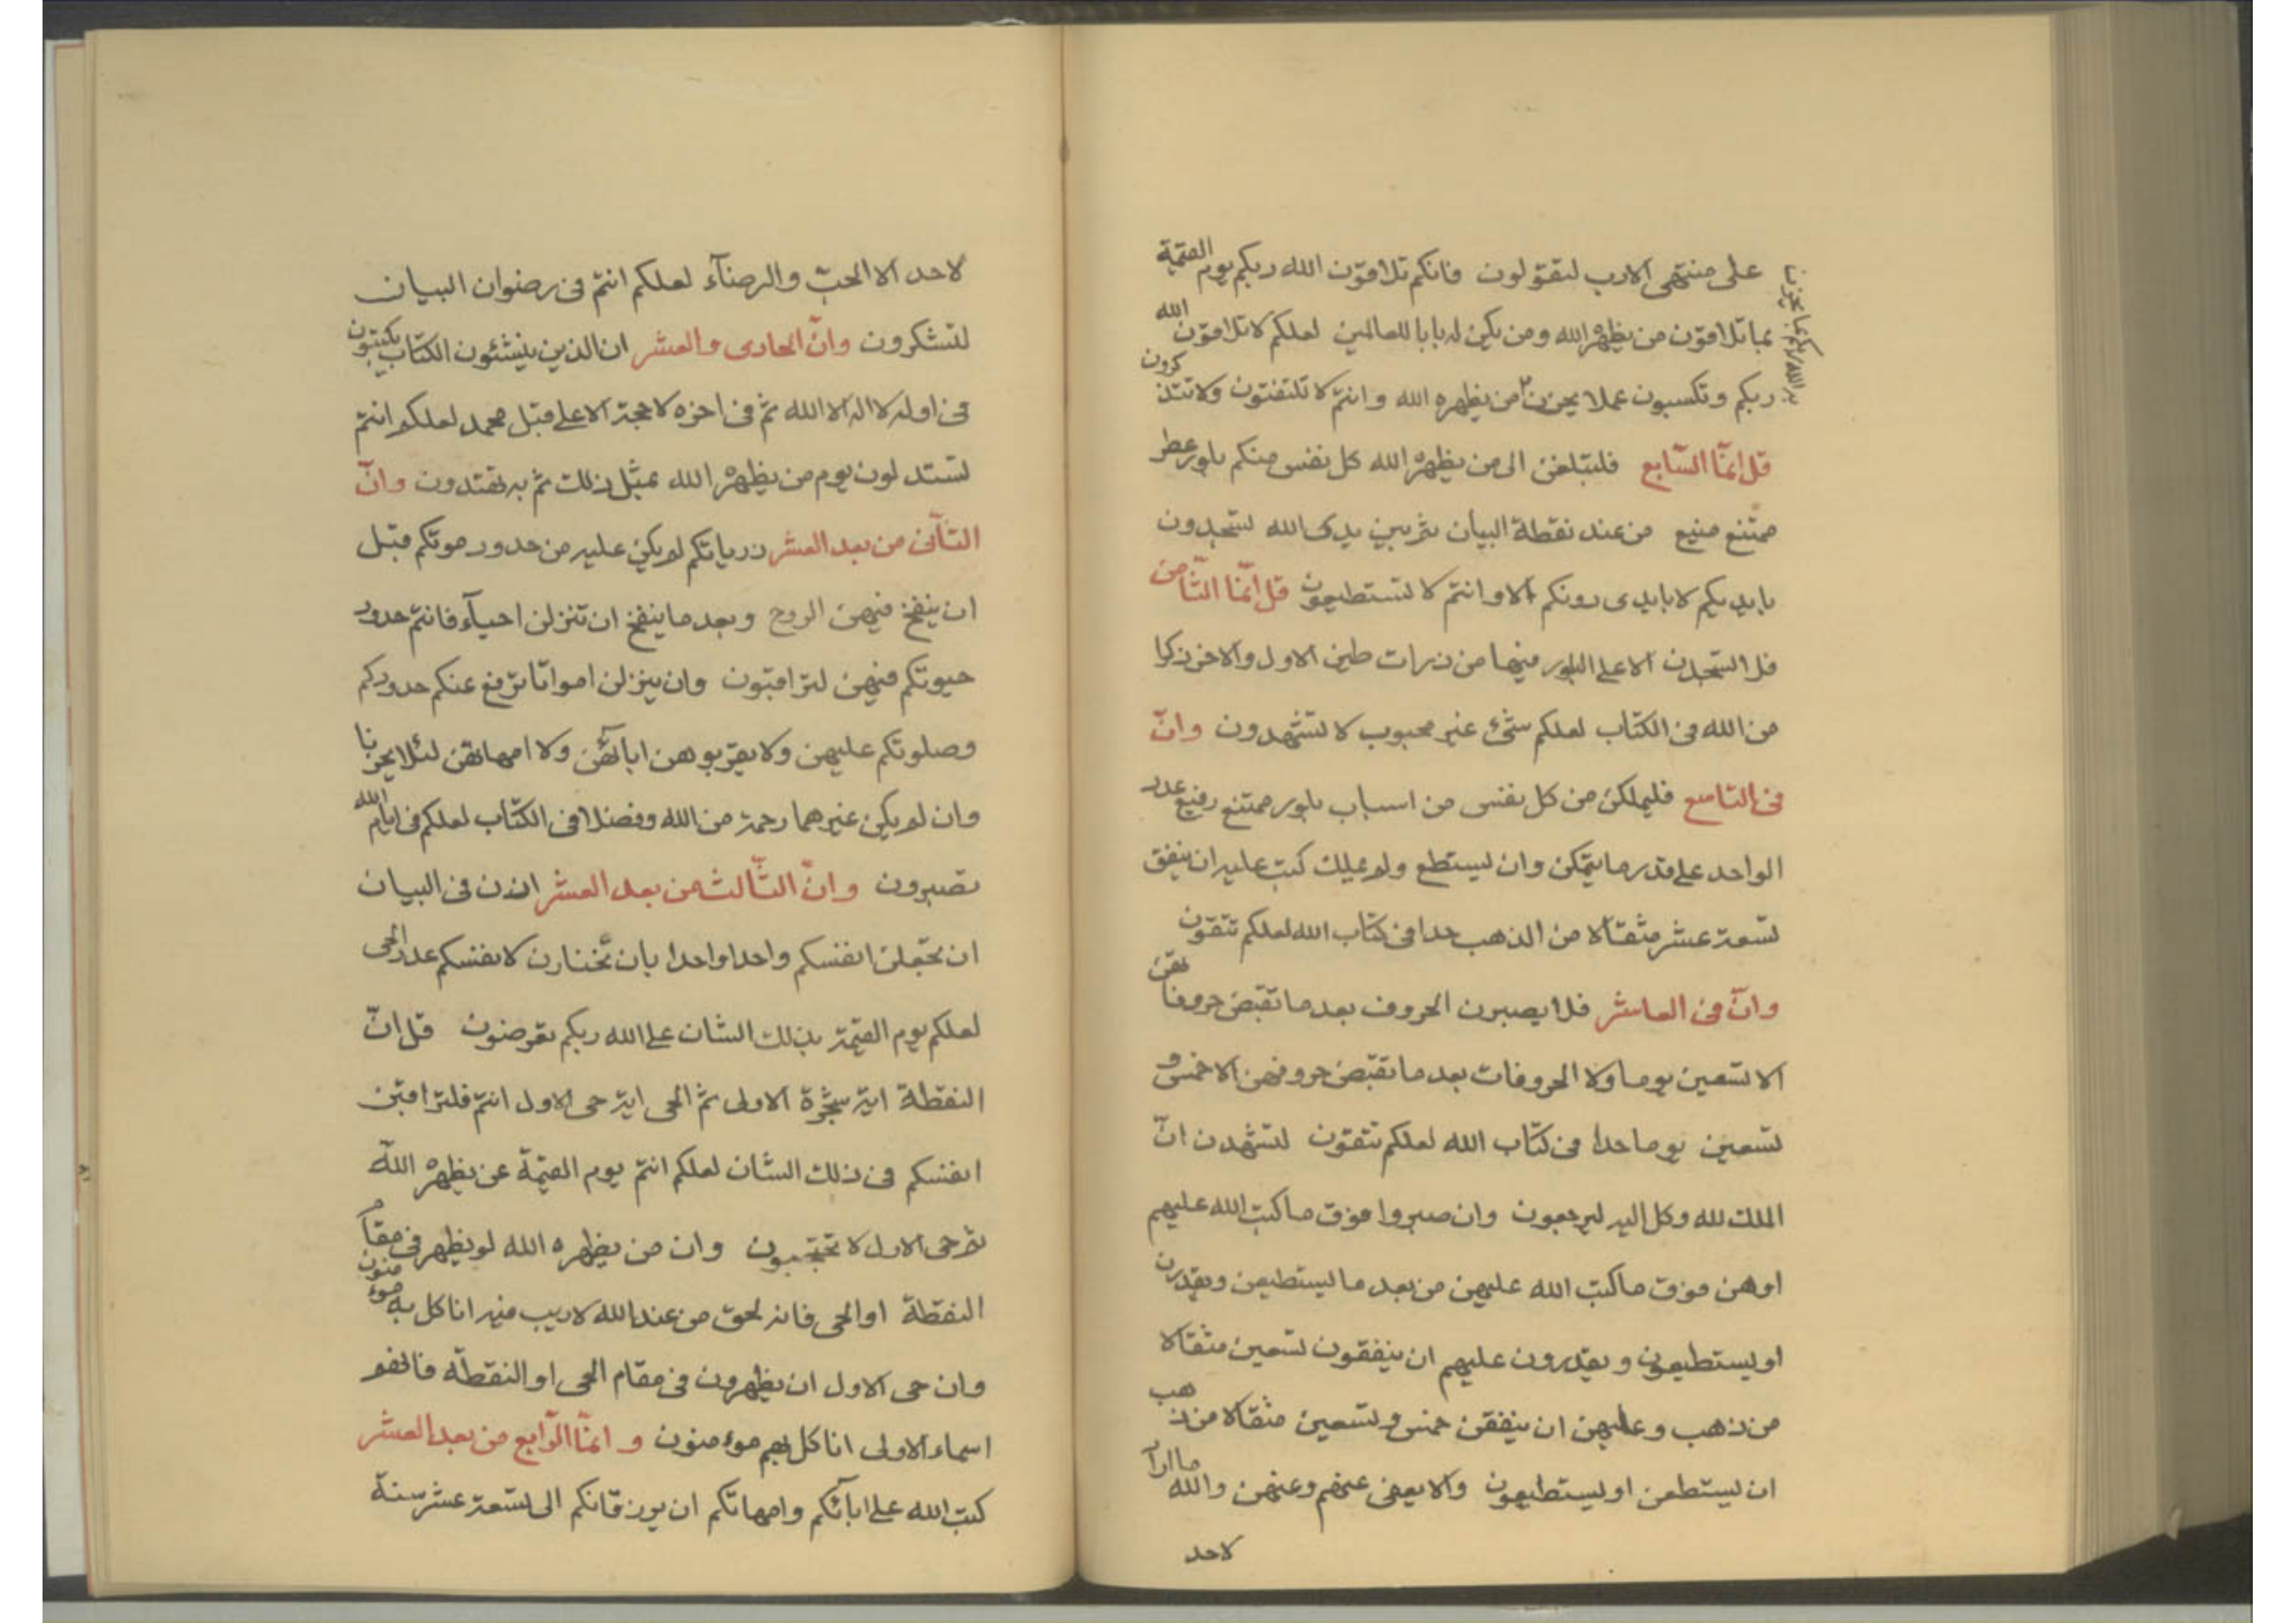 على منتهى الادب لتقولون فانكم تلاقون الله ربكم يوم القيمة
بما تلاقون من يظهره الله ومن يكن له بابا للعالمين لعلكم لا تلاقون الله
ربكم وتكسبون عملا يحزن من يظهره الله وانتم لا تلتفتون ولا تتذكرون
قل انما السابع فلتبلغن الى من يظهره الله كل نفس منكم بلور عطر
ممتنع منيع من عند نقطة البيان ثم بين يدى الله لتسجدون
بايديكم لا بايدى دونكم الا وانتم لا تستطيعون قل انما الثامن
فلا تسجدن الا على البلور فيها من ذرات طين الاول والاخر ذكرا
من الله فى الكتاب لعلكم شىء غير محبوب لا تشهدون وان
فى التاسع فليملكن من كل نفس من اسباب بلور ممتنع رفيع عدد
الواحد على قدر ما يتمكن وان ليستطع ولم يملك كتب عليه ان ينفق
تسعة عشر مثقالا من الذهب حدا فى كتاب الله لعلكم تتقون
وان فى العاشر فلا يصبرن الحروف بعد ما تقبض حروفاتهن
الا تسعين يوما ولا الحروفات بعد ما تقبض حروفهن الا خمس و
تسعين يوما حدا فى كتاب الله لعلكم تتقون لتشهدن ان
الملك لله وكل اليه ليرجعون وان صبروا فوق ما كتب الله عليهم
او هن فوق ما كتب الله عليهن من بعد ما ليستطيعن ويقدرن
او ليستطيعون ويقدرون عليهم ان ينفقون تسعين مثقالا
من ذهب وعليهن ان ينفقن خمس وتسعين مثقالا من ذهب
ان ليستطعن او ليستطيعون والا يعفى عنهم وعنهن والله ما اراد
لاحد
لاحد الا الحب والرضاء لعلكم انتم فى رضوان البيان
لتشكرون وان الحادى والعشر ان الذين ينشئون الكتاب يكتبون
فى اوله لا اله الا الله ثم فى اخره لا حجة الا على قبل محمد لعلكم انتم
لتستدلون يوم من يظهره الله بمثل ذلك ثم به تهتدون وان
الثانى من بعد العشر ذرياتكم لم يكن عليه من حدود موتكم قبل
ان ينفخ فيهن الروح وبعد ما ينفخ ان تنزلن احياء فانتم حدود
حيوتكم فيهن لتراقبون وان ينزلن امواتا ترفع عنكم حدودكم
وصلوتكم عليهن ولا يقربوهن ابائهن ولا امهاتهن لئلا يحزنا
وان لم يكن غيرهما رحمة من الله وفضلا فى الكتاب لعلكم فى ايام الله
تصبرون وان الثالث من بعد العشر اذن فى البيان
ان تجعلن انفسكم واحدا واحدا بان تختارن لانفسكم عدد الحى
لعلكم يوم القيمة بذلك الشان على الله ربكم تعرضون قل ان
النقطة اية شجرة الاولى ثم الحى اية حى الاول انتم فلتراقبن
انفسكم فى ذلك الشان لعلكم انتم يوم القيمة عن يظهره الله
ثم حى الاول لا تحتجبون وان من يظهره الله لو يظهر فى مقام
النقطة او الحى فانه لحق من عند الله لا ريب فيه انا كل به مؤمنون
وان حى الاول ان يظهرون فى مقام الحى او النقطة
اسماء الاولى انا كل بهم مؤمنون وانما الرابع من بعد العشر
كتب الله على ابائكم وامهاتكم ان يرزقانكم الى تسعة عشر سنة